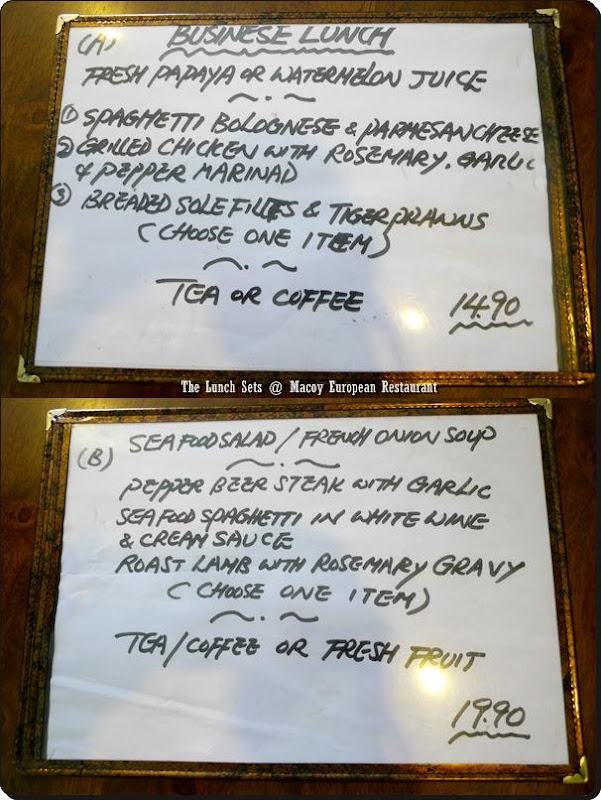 (A) BUSINESE LUNCH
FRESH PAPAYA OR WATERMELON JUICE
① SPAGHETTI BOLOGNESE & PARMESAN CHEESE
② GRILLED CHICKEN WITH ROSEMARY, GARLIC
& PEPPER MARINAD
③ BREADED SOLE FILLTES & TIGER PRAWNS
(CHOOSE ONE ITEM)
TEA OR COFFEE
14.90
The Lunch Sets @ Macoy European Restaurant
(B) SEAFOOD SALAD / FRENCH ONION SOUP
PEPPER BEER STEAK WITH GARLIC
SEAFOOD SPAGHETTI IN WHITE WINE
& CREAM SAUCE
ROAST LAMB WITH ROSEMARY GRAVY
(CHOOSE ONE ITEM)
TEA/COFFEE OR FRESH FRUIT
19.90